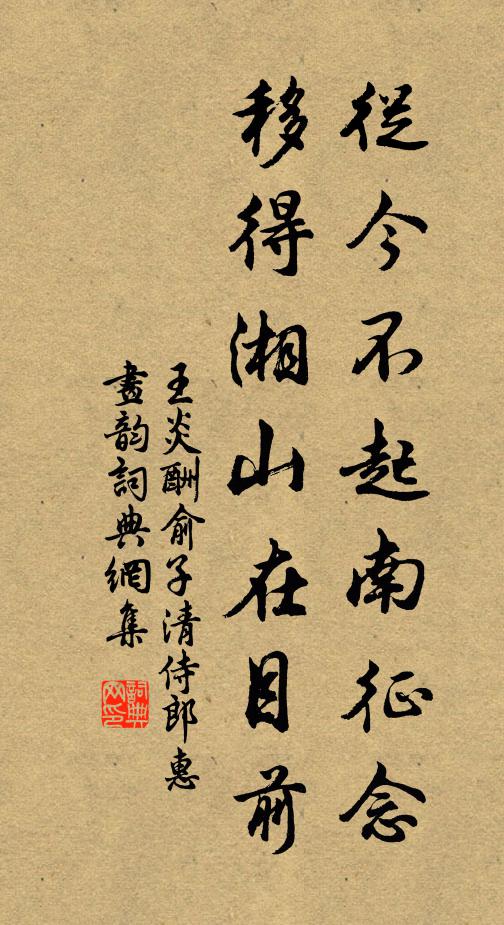 從今不起南征念
移得湘山在目前
王炎酬俞子清侍郎惠
畫韵詞典網集
詞典
网印